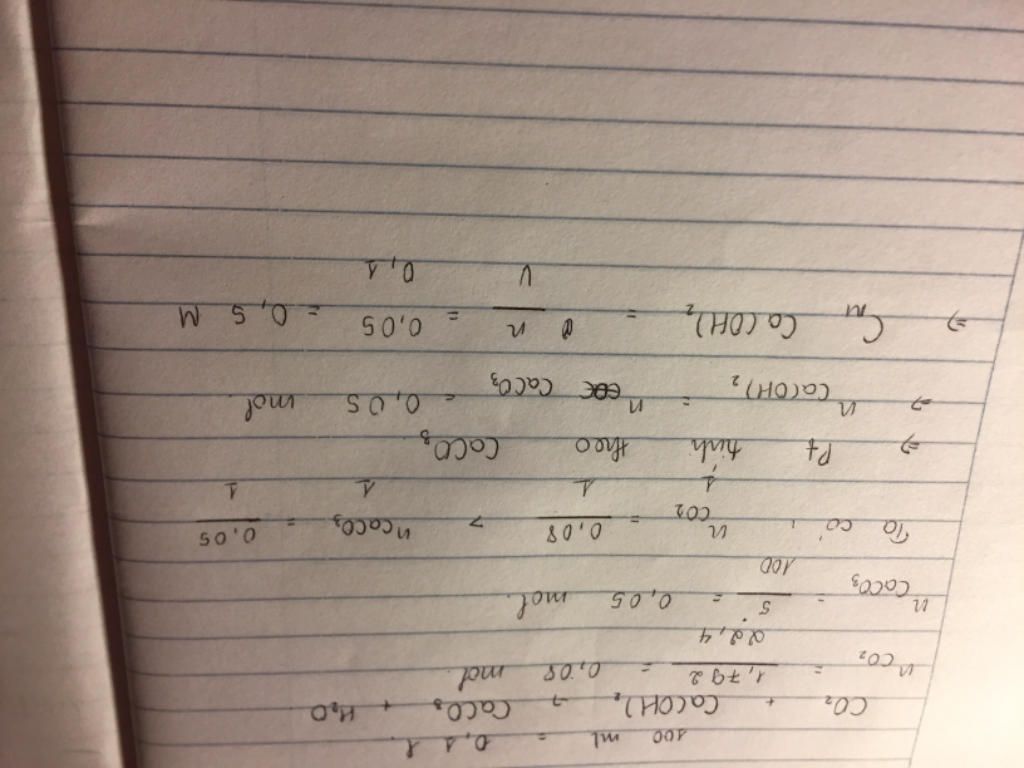 100 ml = 0,1 l.
CO₂ + Ca(OH)₂ → CaCO₃ + H₂O
n CO₂ = 1,792 / 22,4 = 0,08 mol.
n CaCO₃ = 5 / 100 = 0,05 mol.
Ta có: n CO₂ / 1 = 0,08 / 1 > n CaCO₃ / 1 = 0,05 / 1
⇒ Pt tính theo CaCO₃
⇒ n Ca(OH)₂ = n CaCO₃ = 0,05 mol.
⇒ CM Ca(OH)₂ = n / V = 0,05 / 0,1 = 0,5 M